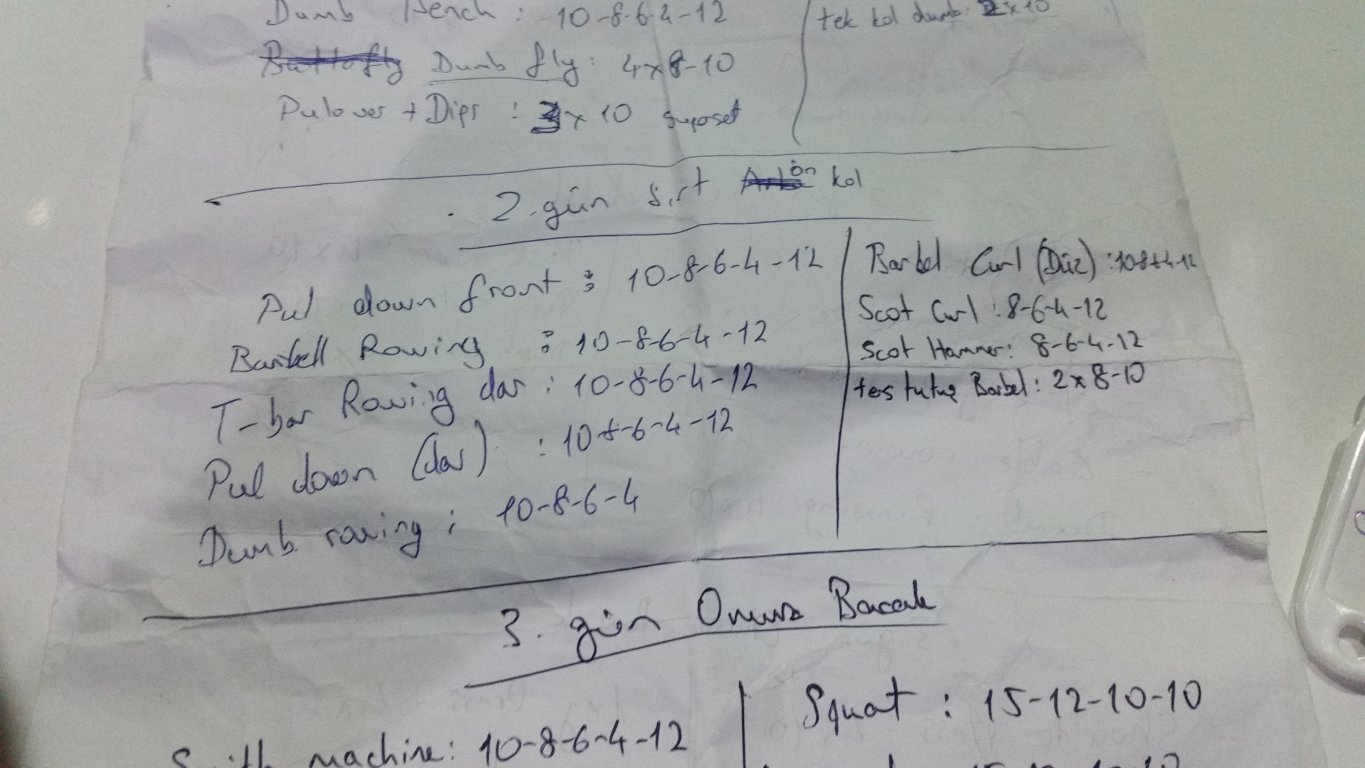 Dumb Bench : 10-8-6-4-12
tek kol dumb: 2x10
Dumb fly: 4x8-10
Pulover + Dips : 3x10 superset
2. gün Sırt ön kol
Pul down front : 10-8-6-4-12
Barbell Rowing : 10-8-6-4-12
T-bar Rowing dar : 10-8-6-4-12
Pul down (dar) : 10-8-6-4-12
Dumb rowing : 10-8-6-4
Barbel Curl (Düz) :
Scot Curl : 8-6-4-12
Scot Hammer: 8-6-4-12
ters tutuş Barbel: 2x8-10
3. gün Omuz Bacak
Smith machine: 10-8-6-4-12
Squat : 15-12-10-10